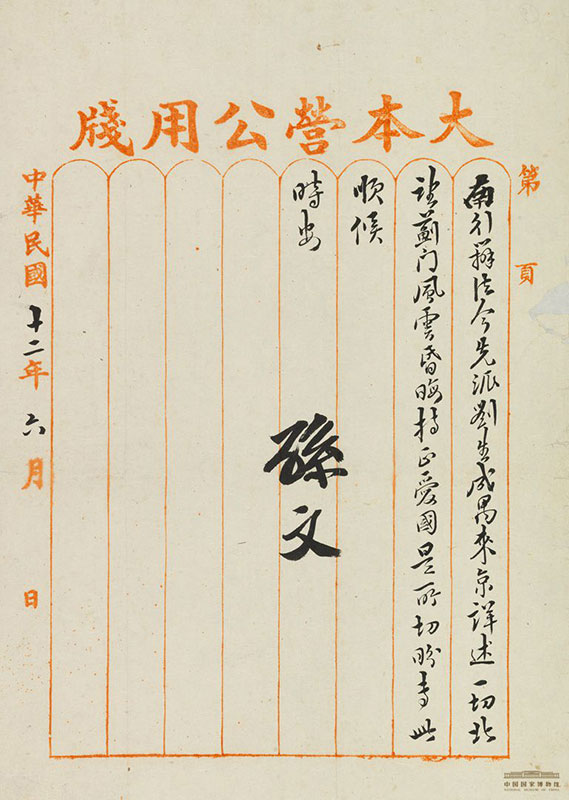 大本營公用牋
第 頁
南行辦法今先派劉生成禺來京詳述一切北
望薊门風雲昏晦持正愛國是所切盼專此
順候
時安
孫文
中華民國十二年六月 日
中国国家博物馆
NATIONAL MUSEUM OF CHINA